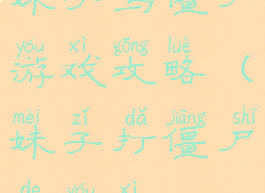 妹子与僵尸
yóu xì gōng lüè
游戏攻略（
mèi zǐ dǎ jiāng shī
妹子打僵尸
de yóu xì